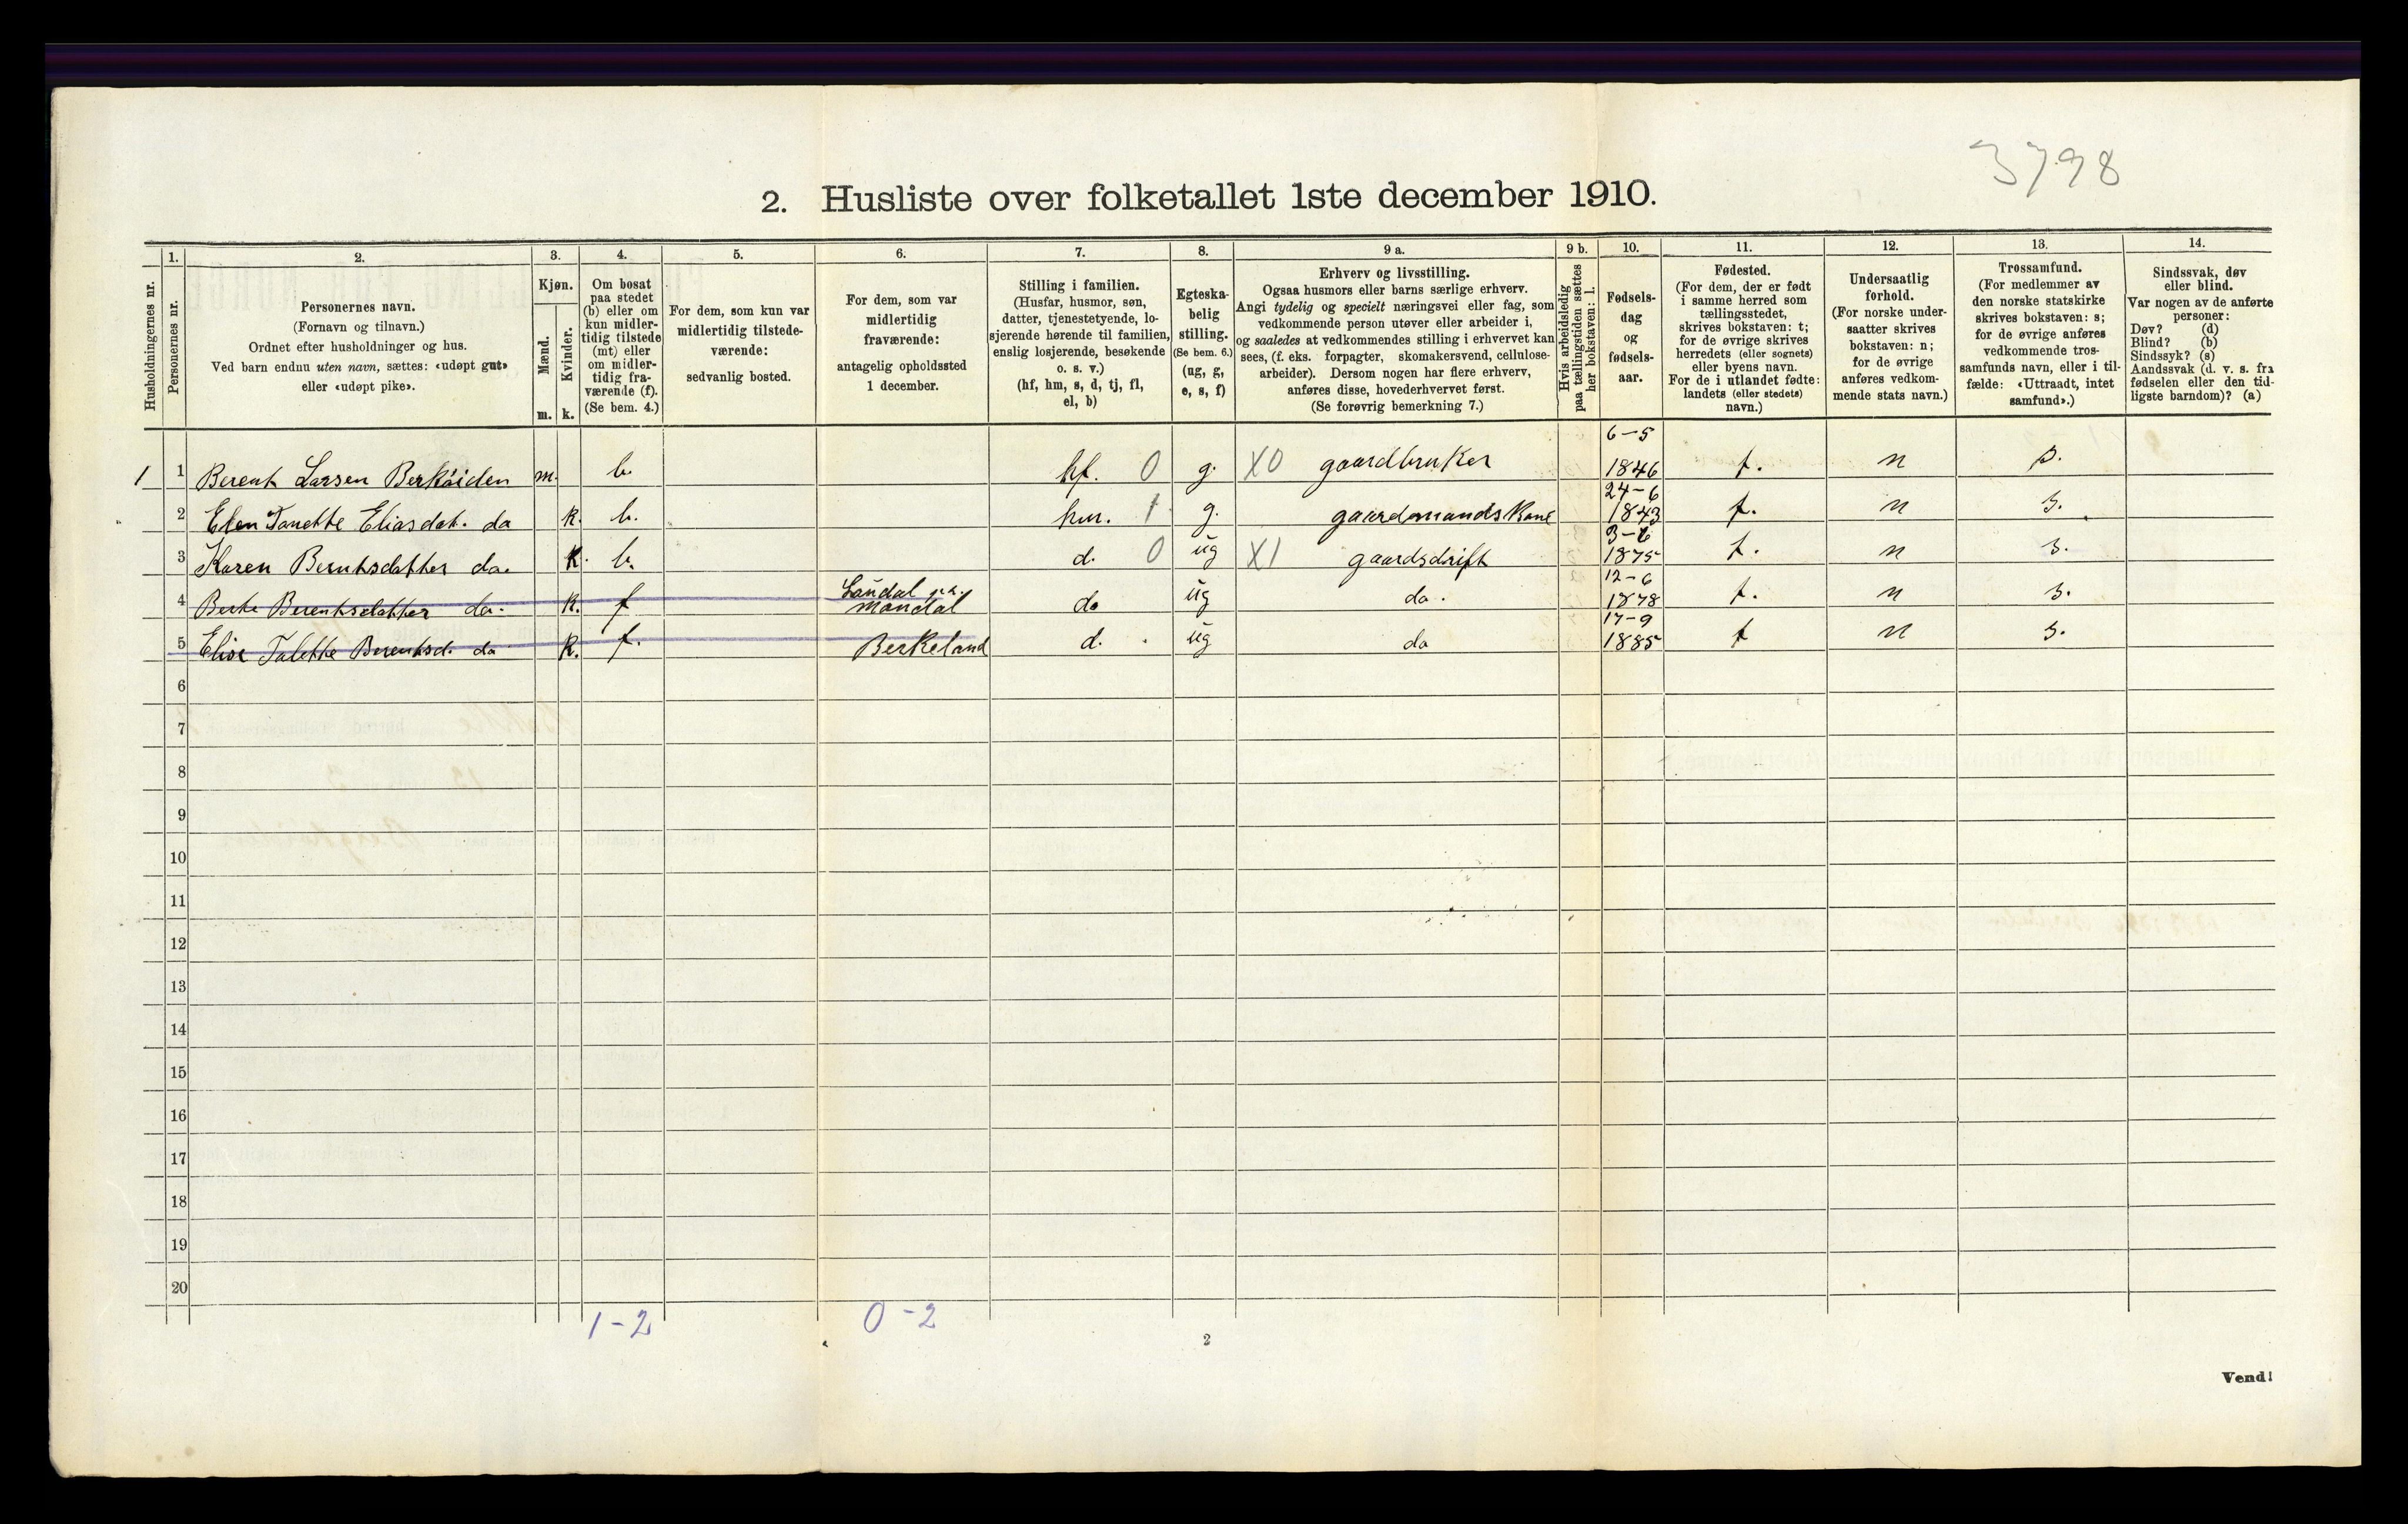 3798
2. Husliste over folketallet 1ste december 1910.
Husholdningernes nr.
1.
Personernes nr.
2.
Personernes navn.
(Fornavn og tilnavn.)
Ordnet efter husholdninger og hus.
Ved barn endnu uten navn, sættes: «udøpt gut»
eller «udøpt pike».
3.
Kjøn.
Mænd.
Kvinder.
m. k.
4.
Om bosat
paa stedet
(b) eller om
kun midler-
tidig tilstede
(mt) eller
om midler-
tidig fra-
værende (f).
(Se bem. 4.)
5.
For dem, som kun var
midlertidig tilstede-
værende:
sedvanlig bosted.
6.
For dem, som var
midlertidig
fraværende:
antagelig opholdssted
1 december.
7.
Stilling i familien.
(Husfar, husmor, søn,
datter, tjenestetyende, lo-
sjerende hørende til familien,
enslig losjerende, besøkende
o. s. v.)
(hf, hm, s, d, tj, fl,
el, b)
8.
Egteska-
belig
stilling.
(Se bem. 6.)
(ug, g,
e, s, f)
9 a.
Erhverv og livsstilling.
Ogsaa husmors eller barns særlige erhverv.
Angi tydelig og specielt næringsvei eller fag, som
vedkommende person utøver eller arbeider i,
og saaledes at vedkommendes stilling i erhvervet kan
sees, (f. eks. forpagter, skomakersvend, cellulose-
arbeider). Dersom nogen har flere erhverv,
anføres disse, hovederhvervet først.
(Se forøvrig bemerkning 7.)
9 b.
Hvis arbeidsledig
paa tællingstiden sættes
her bokstaven: l.
10.
Fødsels-
dag
og
fødsels-
aar.
11.
Fødested.
(For dem, der er født
i samme herred som
tællingsstedet,
skrives bokstaven: t;
for de øvrige skrives
herredets (eller sognets)
eller byens navn.
For de i utlandet fødte:
landets (eller stedets)
navn.)
12.
Undersaatlig
forhold.
(For norske under-
saatter skrives
bokstaven: n;
for de øvrige
anføres vedkom-
mende stats navn.)
13.
Trossamfund.
(For medlemmer av
den norske statskirke
skrives bokstaven: s;
for de øvrige anføres
vedkommende tros-
samfunds navn, eller i til-
fælde: «Uttraadt, intet
samfund».)
14.
Sindssvak, døv
eller blind.
Var nogen av de anførte
personer:
Døv? (d)
Blind? (b)
Sindssyk? (s)
Aandssvak (d. v. s. fra
fødselen eller den tid-
ligste barndom)? (a)
1 1 Berent Larsen Berköiden m. b. hf. 0 g. X0 gaardbruker 6-5 1846 t. n s.
2 Elen Tanette Eliasdat. da k. b. hm. 1 g. gaardmandskone 24-6 1843 t. n s.
3 Karen Berntsdatter da. k. b. d. 0 ug X1 gaardsdrift 3-6 1875 t. n s.
4 Berte Berentsdatter da. k. f Laudal Mandal do ug da. 12-6 1878 t. n s.
5 Elise Talette Berentsd. da k. f. Berkeland d. ug da 17-9 1885 t n s.
6
7
8
9
10
11
12
13
14
15
16
17
18
19
20
1-2 0-2
2
Vend!